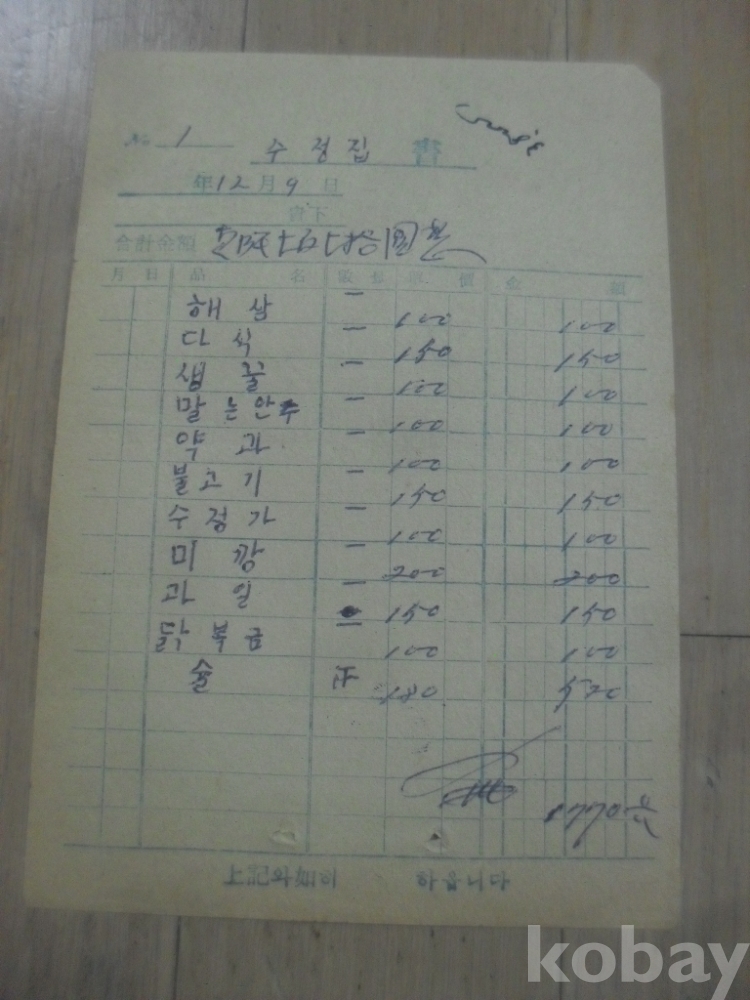 No 1
수정집 書
年 12 月 9 日
貴下
合計金額
月 日 品 名 數量 單 價 金 額
해 삼 — 100 100
다 식 — 150 150
생 굴 — 100 100
말은안주 — 100 100
약 과 — 100 100
불고기 — 150 150
수정가 — 100 100
미 깡 — 200 200
과 일 — 150 150
닭 복 금 — 100 100
술 正 180
1770
上記와如히 하읍니다
kobay